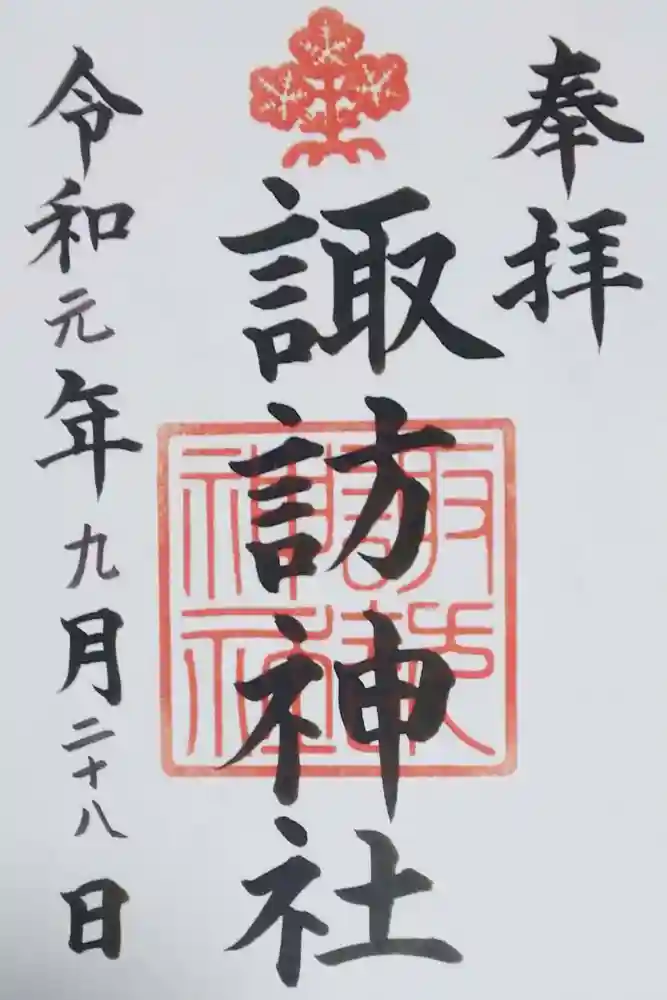 奉拝
諏訪神社
令和元年九月二十八日
諏訪
神社